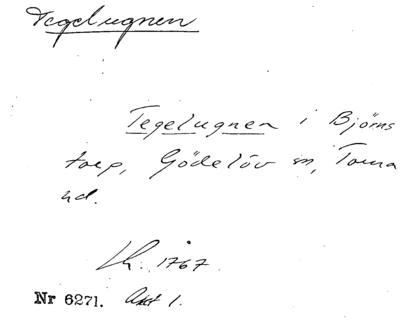 Tegelugnen
Tegelugnen i Björns
torp, Gödelöv sn, Torna
hd.
Lh. 1767.
Nr 6271. Akt 1.